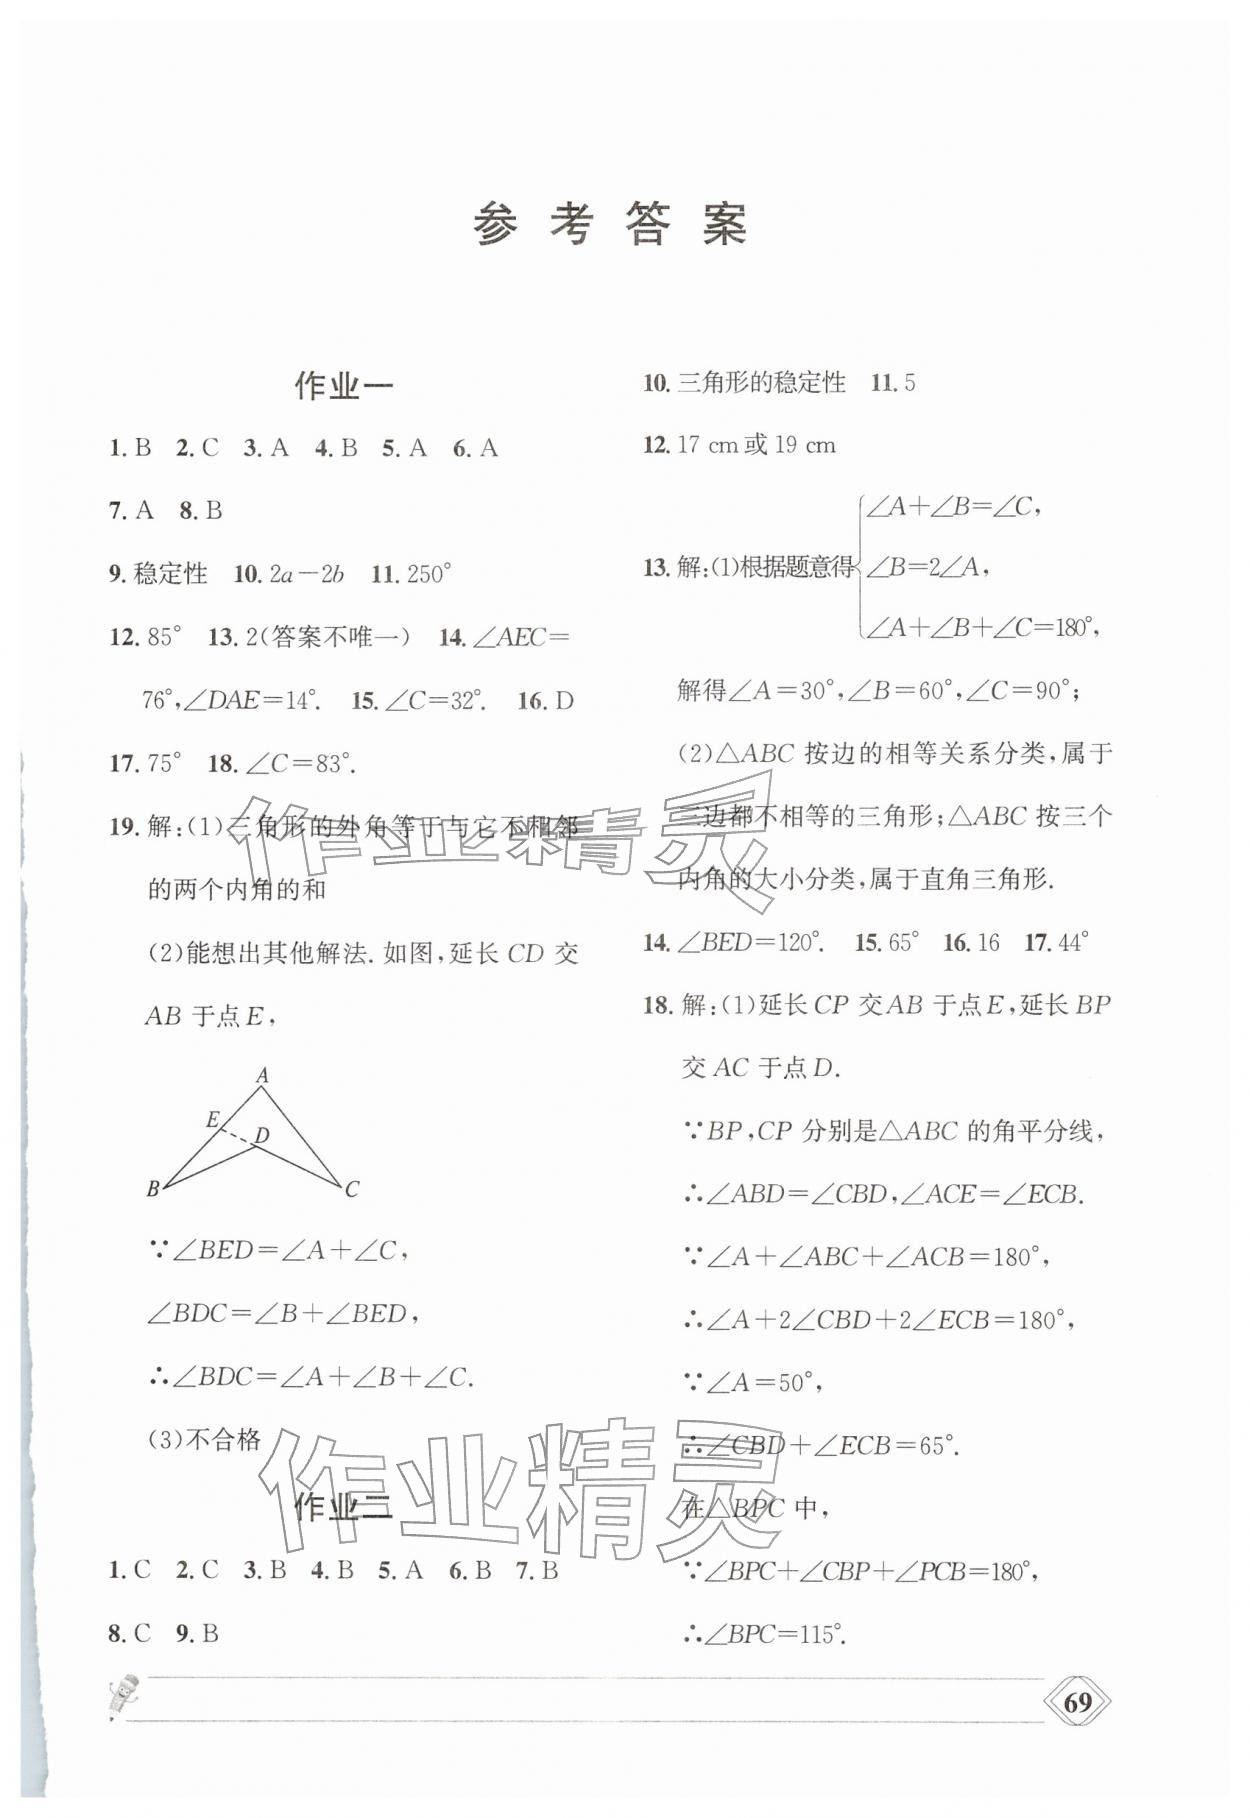 参考答案
作业一
1. B 2. C 3. A 4. B 5. A 6. A
7. A 8. B
9. 稳定性 10. 2a－2b 11. 250°
12. 85° 13. 2(答案不唯一) 14. ∠AEC＝
76°,∠DAE＝14°. 15. ∠C＝32°. 16. D
17. 75° 18. ∠C＝83°.
19. 解:(1)三角形的外角等于与它不相邻
的两个内角的和
(2)能想出其他解法. 如图,延长 CD 交
AB 于点 E,
A
E
D
B
C
∵∠BED＝∠A＋∠C,
∠BDC＝∠B＋∠BED,
∴∠BDC＝∠A＋∠B＋∠C.
(3)不合格
作业二
1. C 2. C 3. B 4. B 5. A 6. B 7. B
8. C 9. B
10. 三角形的稳定性 11. 5
12. 17 cm或 19 cm
13. 解:(1)根据题意得{∠A＋∠B＝∠C,
∠B＝2∠A,
∠A＋∠B＋∠C＝180°,
解得∠A＝30°,∠B＝60°,∠C＝90°;
(2)△ABC 按边的相等关系分类,属于
三边都不相等的三角形;△ABC 按三个
内角的大小分类,属于直角三角形.
14. ∠BED＝120°. 15. 65° 16. 16 17. 44°
18. 解:(1)延长 CP 交 AB 于点 E,延长 BP
交 AC 于点 D.
∵BP,CP 分别是△ABC 的角平分线,
∴∠ABD＝∠CBD,∠ACE＝∠ECB.
∵∠A＋∠ABC＋∠ACB＝180°,
∴∠A＋2∠CBD＋2∠ECB＝180°,
∵∠A＝50°,
∴∠CBD＋∠ECB＝65°.
在△BPC 中,
∵∠BPC＋∠CBP＋∠PCB＝180°,
∴∠BPC＝115°.
69
作业精灵
作业精灵